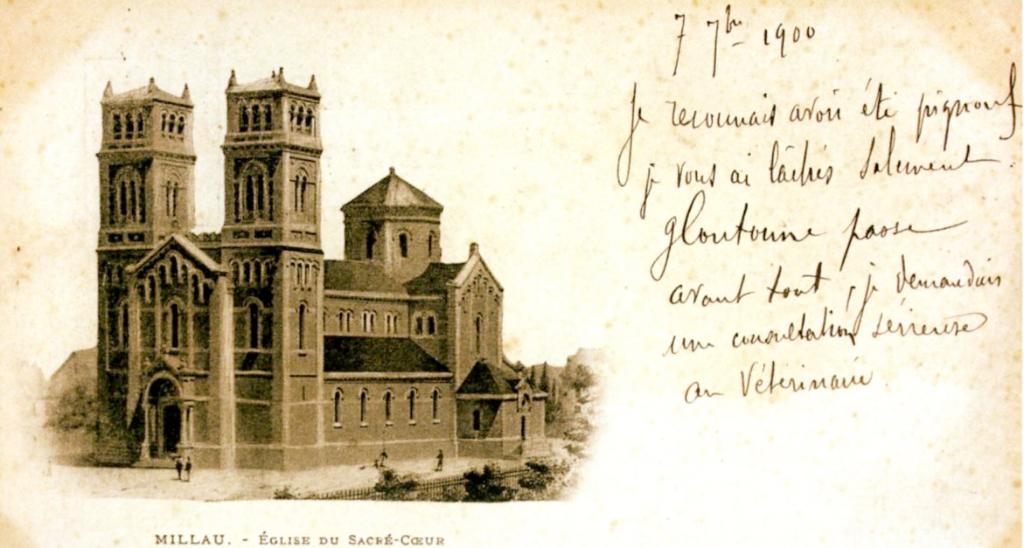 7 7bre 1900
Je reconnais avoir été pignouf
je vous ai lâchés salement
Gloutonne passe
avant tout, je demandais
une consultation sérieuse
au Vétérinaire
MILLAU. - ÉGLISE DU SACRÉ-CŒUR